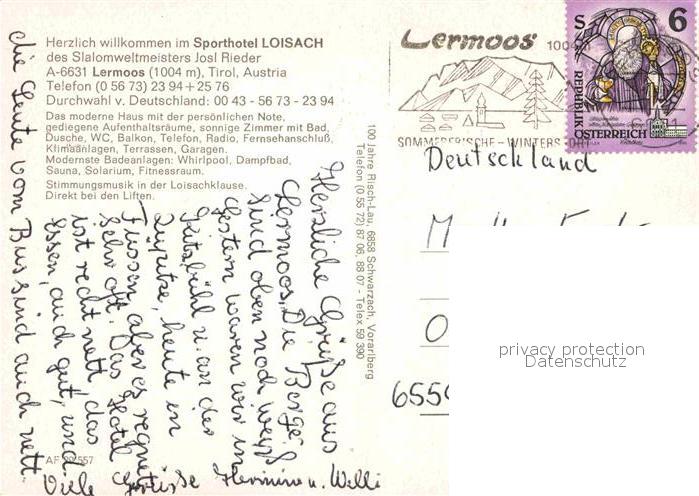 Herzlich willkommen im Sporthotel LOISACH
des Slalomweltmeisters Josl Rieder
A-6631 Lermoos (1004 m), Tirol, Austria
Telefon (0 56 73) 23 94 + 25 76
Durchwahl v. Deutschland: 00 43 - 56 73 - 23 94
Das moderne Haus mit der persönlichen Note,
gediegene Aufenthaltsräume, sonnige Zimmer mit Bad,
Dusche, WC, Balkon, Telefon, Radio, Fernsehanschluß,
Klimaanlagen, Terrassen, Garagen.
Modernste Badeanlagen: Whirlpool, Dampfbad,
Sauna, Solarium, Fitnessraum.
Stimmungsmusik in der Loisachklause.
Direkt bei den Liften.
Herzliche Grüße aus
Lermoos. Die Berge
sind oben noch weiß
Gestern waren wir in
Kitzbühl u. an der
heute in
Füssen, aber es regnet
sehr oft. Das Hotel
ist recht nett, das
Essen, auch gut, und
die Leute vom Bus sind auch nett.
Viele Grüsse Hermine u. Willi
AF 557
100 Jahre Risch-Lau, 6858 Schwarzach, Vorarlberg
Telefon (0 55 72) 87 06, 88 07 - Telex 59 390
Lermoos 1004m
SOMMERFRISCHE - WINTERSPORT
S 6
REPUBLIK
ÖSTERREICH
Deutschland
M
O
655
privacy protection
Datenschutz